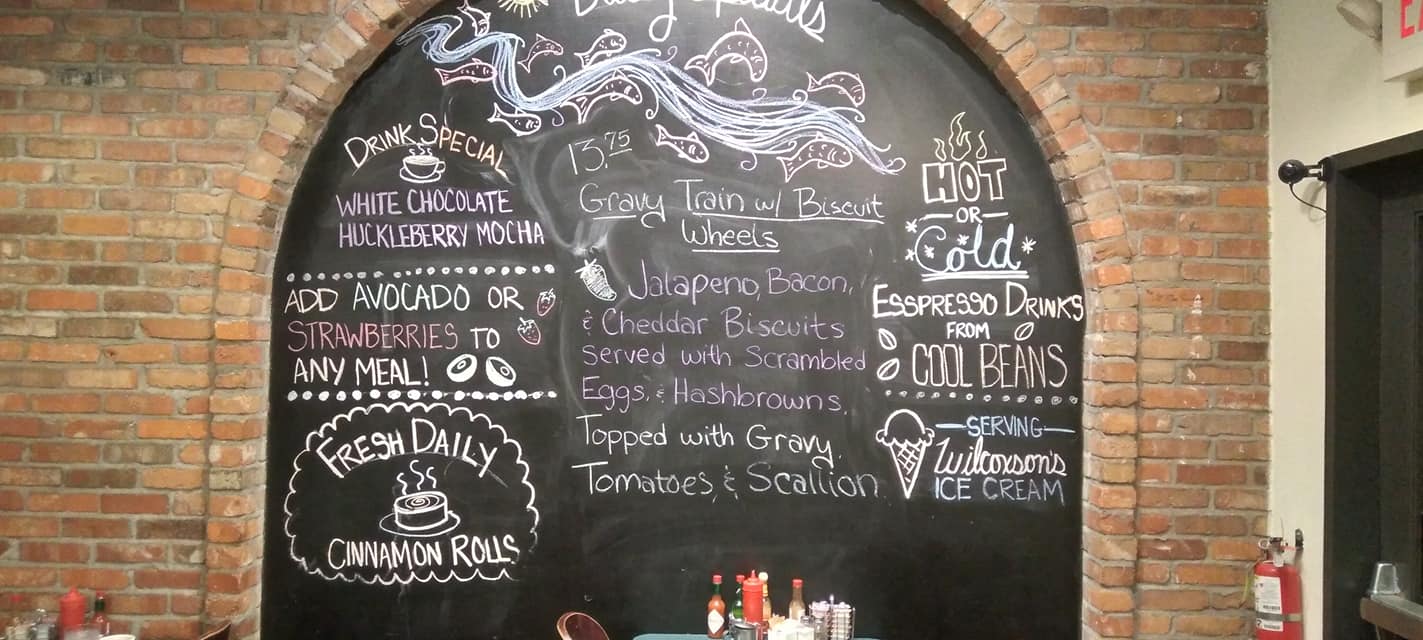 Daily Specials
DRINK SPECIAL
WHITE CHOCOLATE
HUCKLEBERRY MOCHA
ADD AVOCADO OR
STRAWBERRIES TO
ANY MEAL!
FRESH DAILY
CINNAMON ROLLS
13.75
Gravy Train w/ Biscuit
Wheels
Jalapeno, Bacon,
& Cheddar Biscuits
Served with Scrambled
Eggs, & Hashbrowns.
Topped with Gravy,
Tomatoes, & Scallion
HOT
OR
Cold
ESSPRESSO DRINKS
FROM
COOL BEANS
SERVING
Wilcoxson's
ICE CREAM